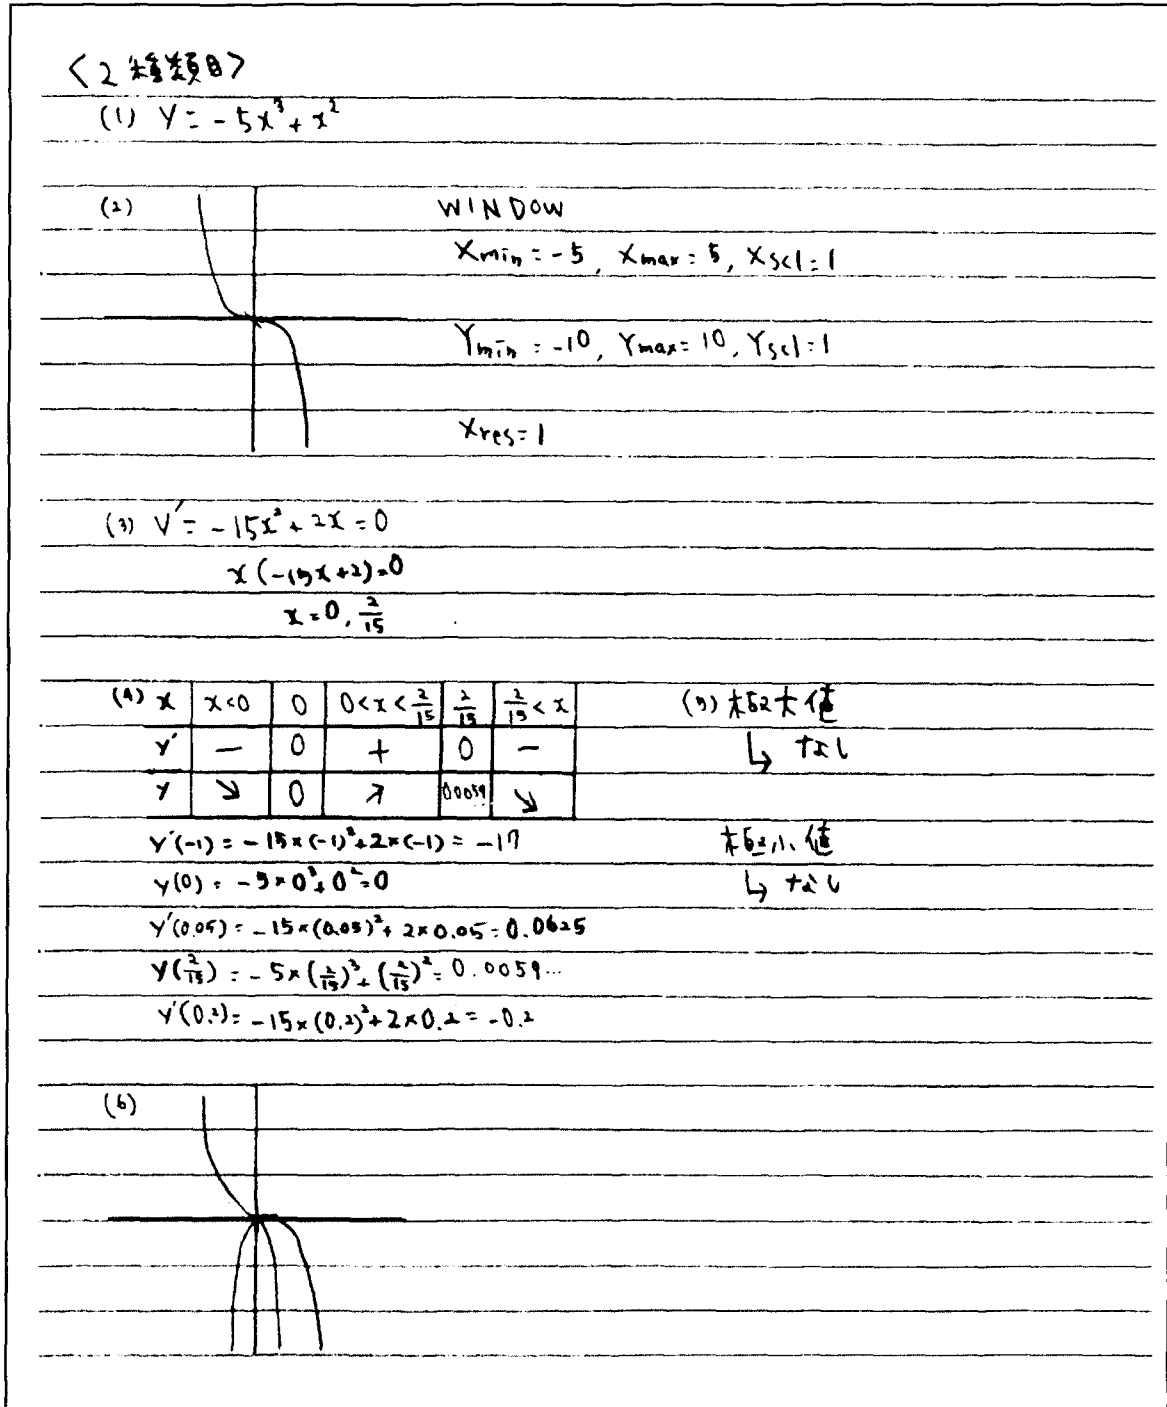 <2種類目>
(1) Y = -5x³ + x²
(2) WINDOW
Xmin = -5, Xmax = 5, Xscl = 1
Ymin = -10, Ymax = 10, Yscl = 1
Xres = 1
(3) Y′ = -15x² + 2x = 0
x(-15x+2) = 0
x = 0, 2/15
(4) x | x<0 | 0 | 0<x<2/15 | 2/15 | 2/15<x (5) 極大値
y′ | − | 0 | + | 0 | − ↳ なし
y | ↘ | 0 | ↗ | 0.0059 | ↘
y′(-1) = -15×(-1)²+2×(-1) = -17 極小値
y(0) = -5×0³+0² = 0 ↳ なし
y′(0.05) = -15×(0.05)²+2×0.05 = 0.0625
y(2/15) = -5×(2/15)³+(2/15)² = 0.0059…
y′(0.2) = -15×(0.2)²+2×0.2 = -0.2
(6)